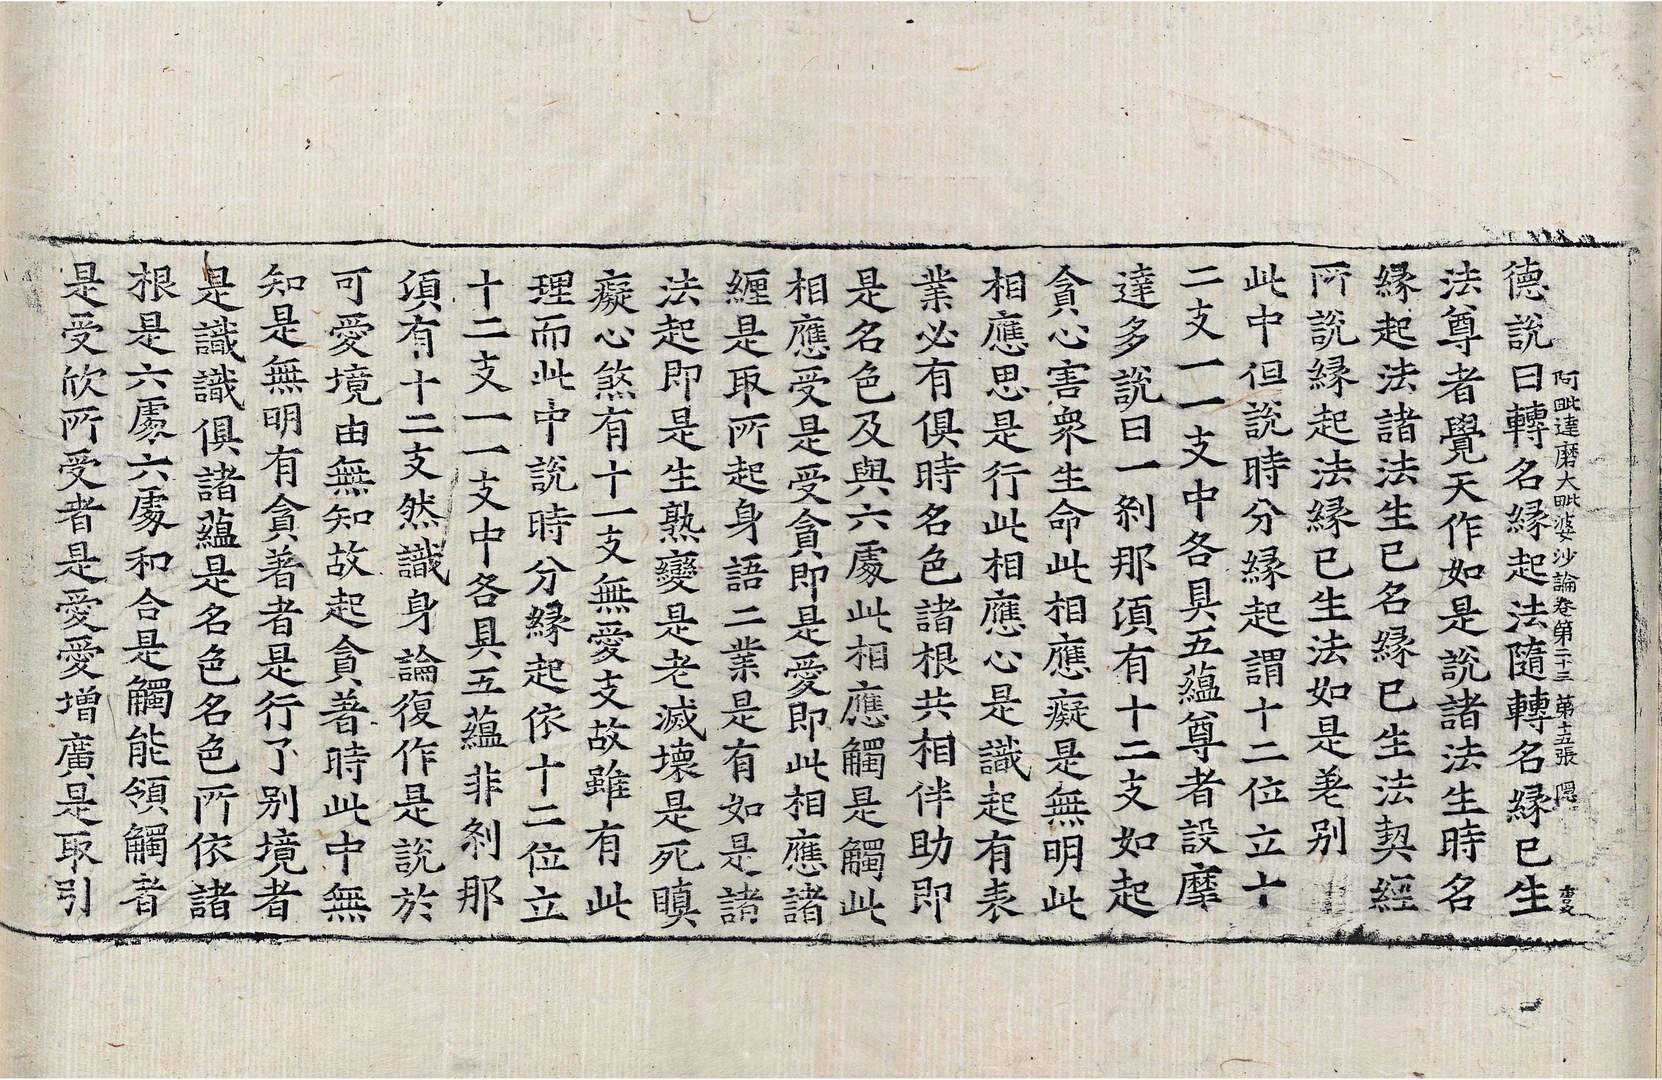 阿毗達磨大毗婆沙論卷第二十三 第十五張 隠
德說曰轉名縁起法隨轉名縁已生
法尊者覺天作如是說諸法生時名
縁起法諸法生已名縁已生法契經
所說縁起法縁已生法如是差別
此中但說時分縁起謂十二位立十
二支一一支中各具五蘊尊者設摩
達多說曰一刹那頃有十二支如起
貪心害衆生命此相應癡是無明此
相應思是行此相應心是識起有表
業必有俱時名色諸根共相伴助即
是名色及與六處此相應觸是觸此
相應受是受貪即是愛即此相應諸
纏是取所起身語二業是有如是諸
法起即是生熟變是老滅壞是死瞋
癡心煞有十一支無愛支故雖有此
理而此中說時分縁起依十二位立
十二支一一支中各具五蘊非刹那
頃有十二支然識身論復作是說於
可愛境由無知故起貪著時此中無
知是無明有貪著者是行了別境者
是識識俱諸蘊是名色名色所依諸
根是六處六處和合是觸能領觸者
是受欣所受者是愛愛增廣是取引